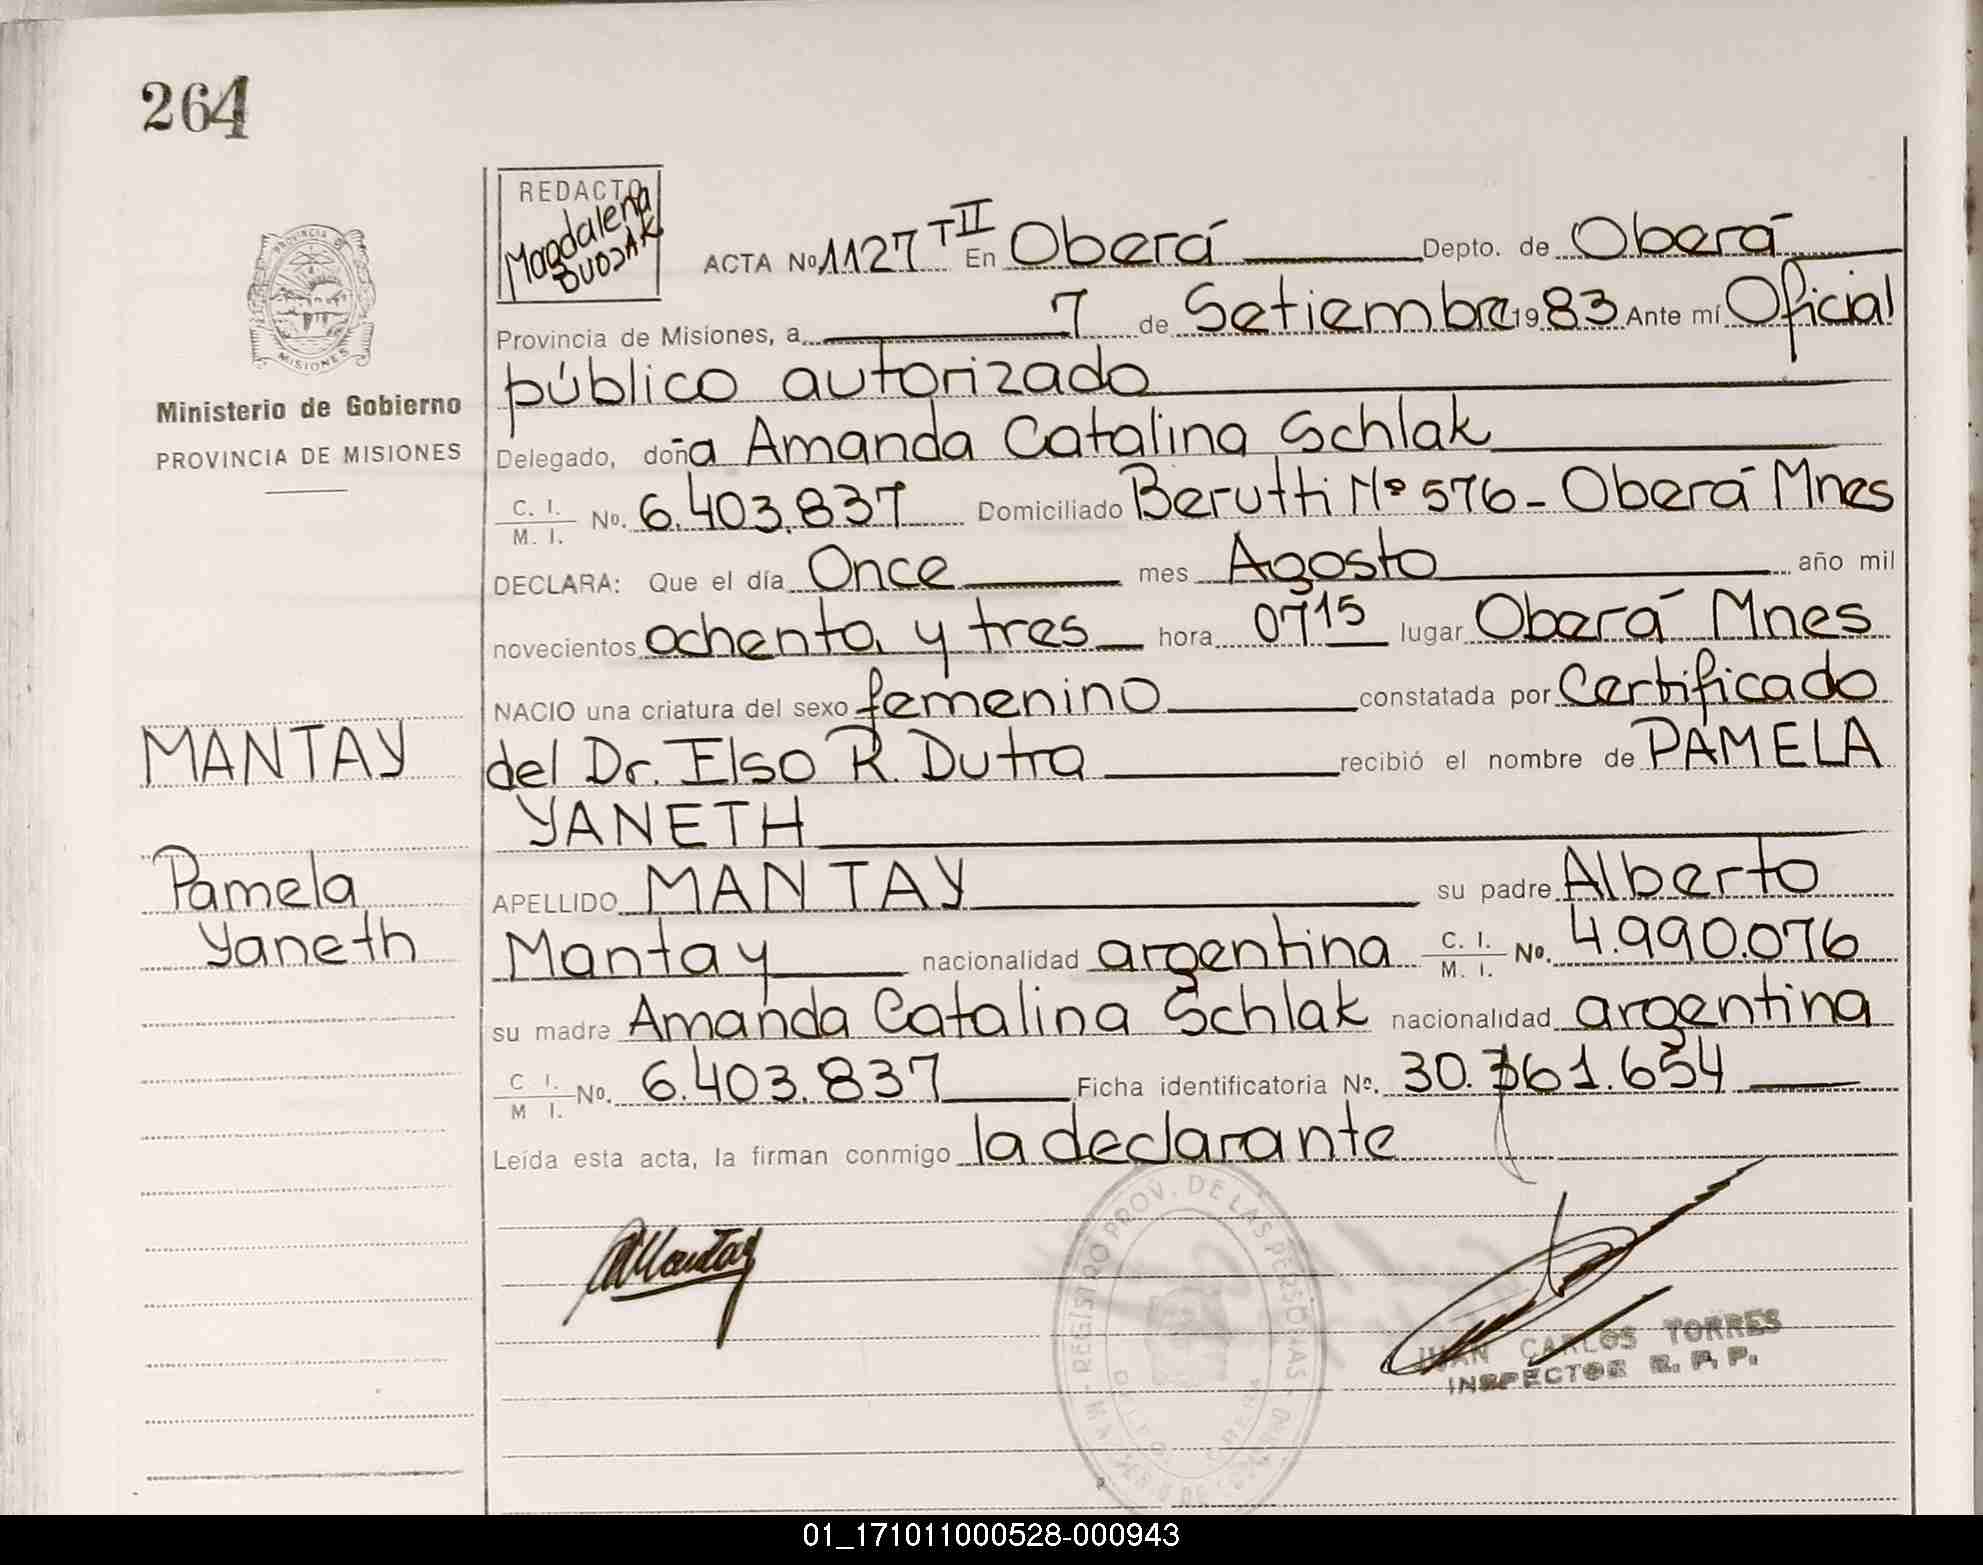 264
REDACTO
Magdalena
BUDJAK
PROVINCIA DE
MISIONES
Ministerio de Gobierno
PROVINCIA DE MISIONES
ACTA Nº 1127 T II En Oberá Depto. de Oberá
Provincia de Misiones, a 7 de Setiembre 19 83 Ante mí Oficial
público autorizado
Delegado, doña Amanda Catalina Schlak
C. I. M. I. No. 6.403.837 Domiciliado Berutti Nº 576 - Oberá Mnes
DECLARA: Que el día Once mes Agosto año mil
novecientos ochenta y tres hora 07 15 lugar Oberá Mnes
NACIO una criatura del sexo femenino constatada por Certificado
MANTAY
del Dr. Elso R. Dutra recibió el nombre de PAMELA
YANETH
Pamela
Yaneth
APELLIDO MANTAY su padre Alberto
Mantay nacionalidad argentina C. I. M. I. No. 4.990.076
su madre Amanda Catalina Schlak nacionalidad argentina
C I. M I. No. 6.403.837 Ficha identificatoria Nº. 30.361.654
Leída esta acta, la firman conmigo la declarante
AMantay
REGISTRO PROV. DE LAS PERSONAS
JUAN CARLOS TORRES
INSPECTOR R. P. P.
01_171011000528-000943